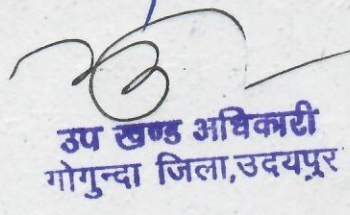 उप खण्ड अधिकारी
गोगुन्दा जिला,उदयपुर